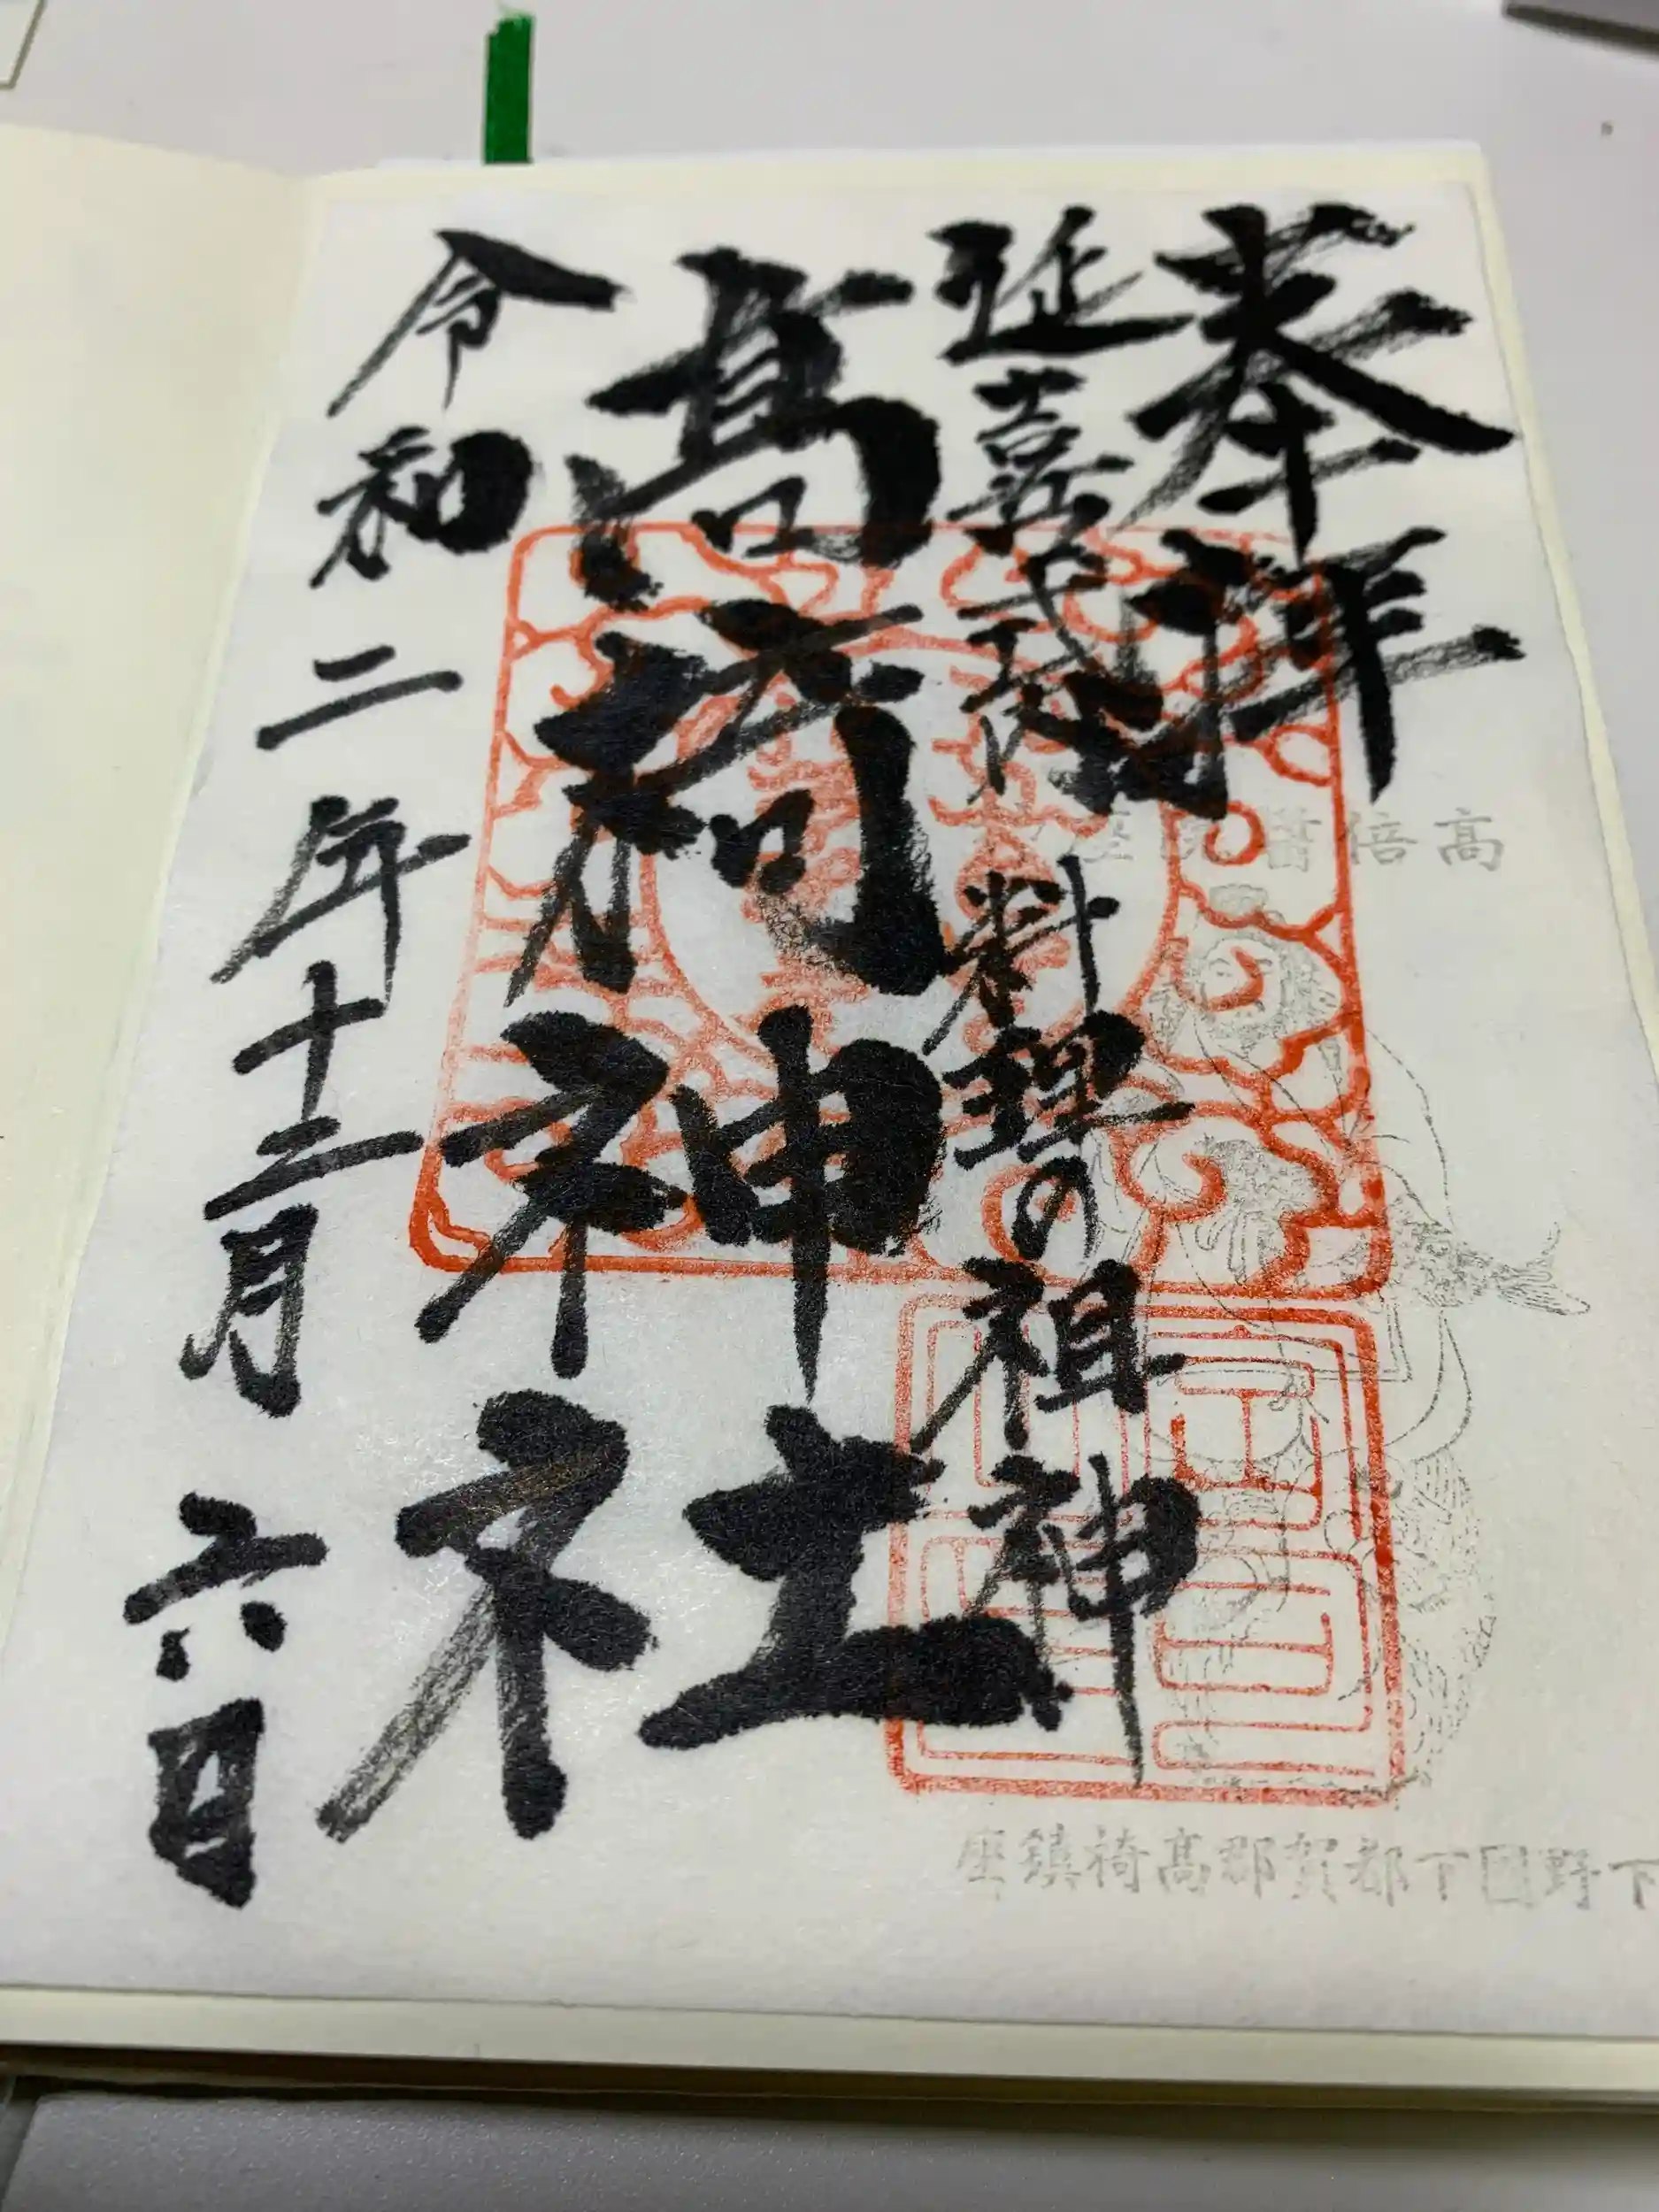 奉拝
延喜式内 料理の祖神
高椅神社
令和二年十二月六日
下野国下都賀郡高椅鎮座